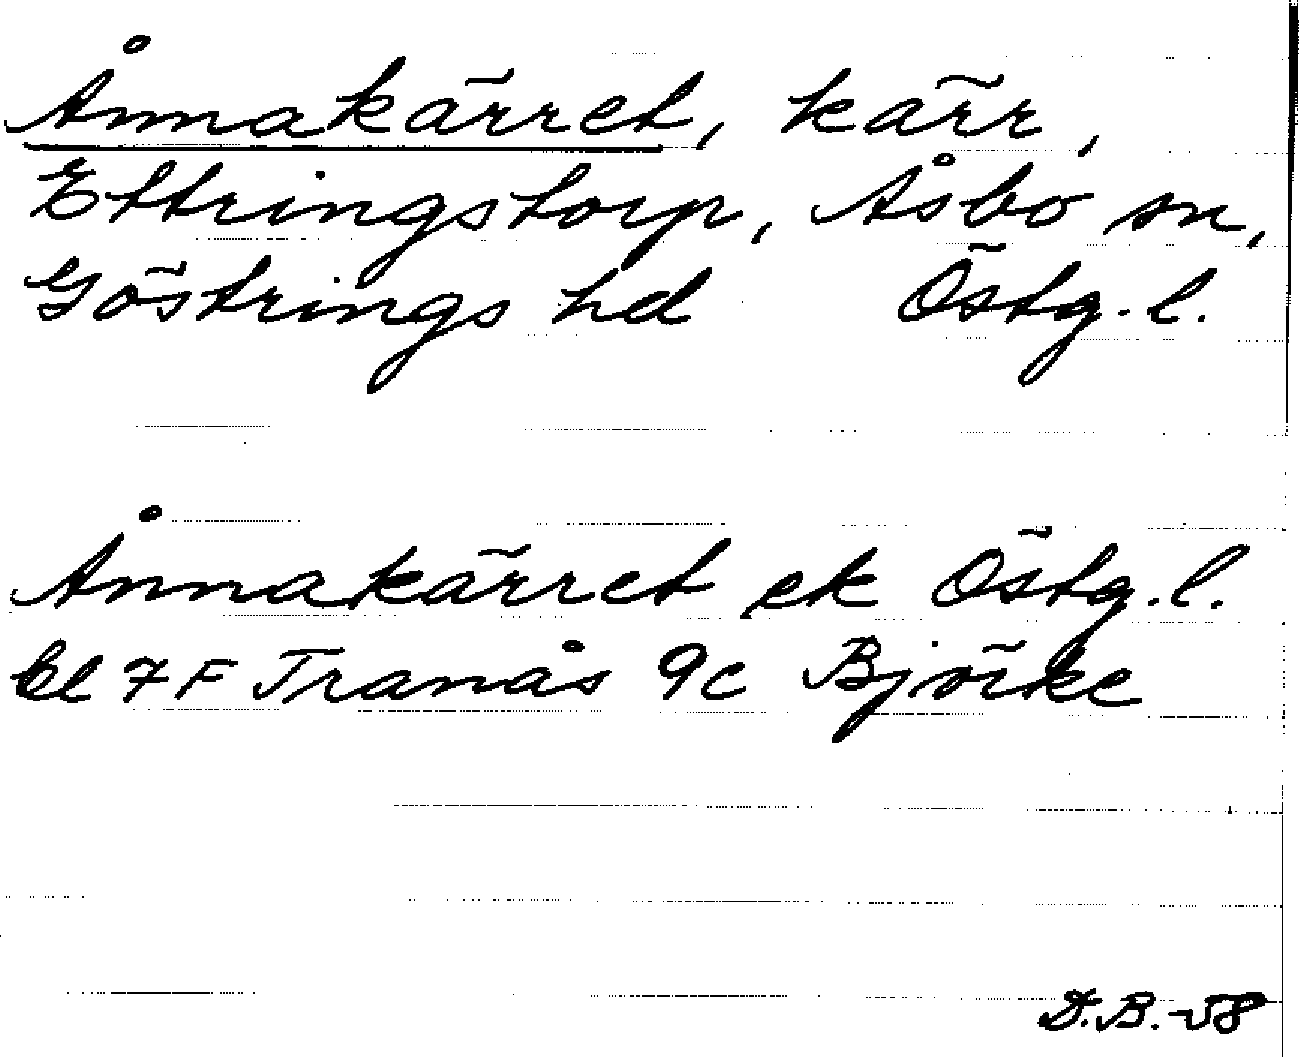 Ånnakärret, kärr,
Ettringstorp, Åsbo sn,
Göstrings hd Östg. l.
Ånnakärret ek Östg. l.
bl 7F Tranås 9c Björke
D.B. -58